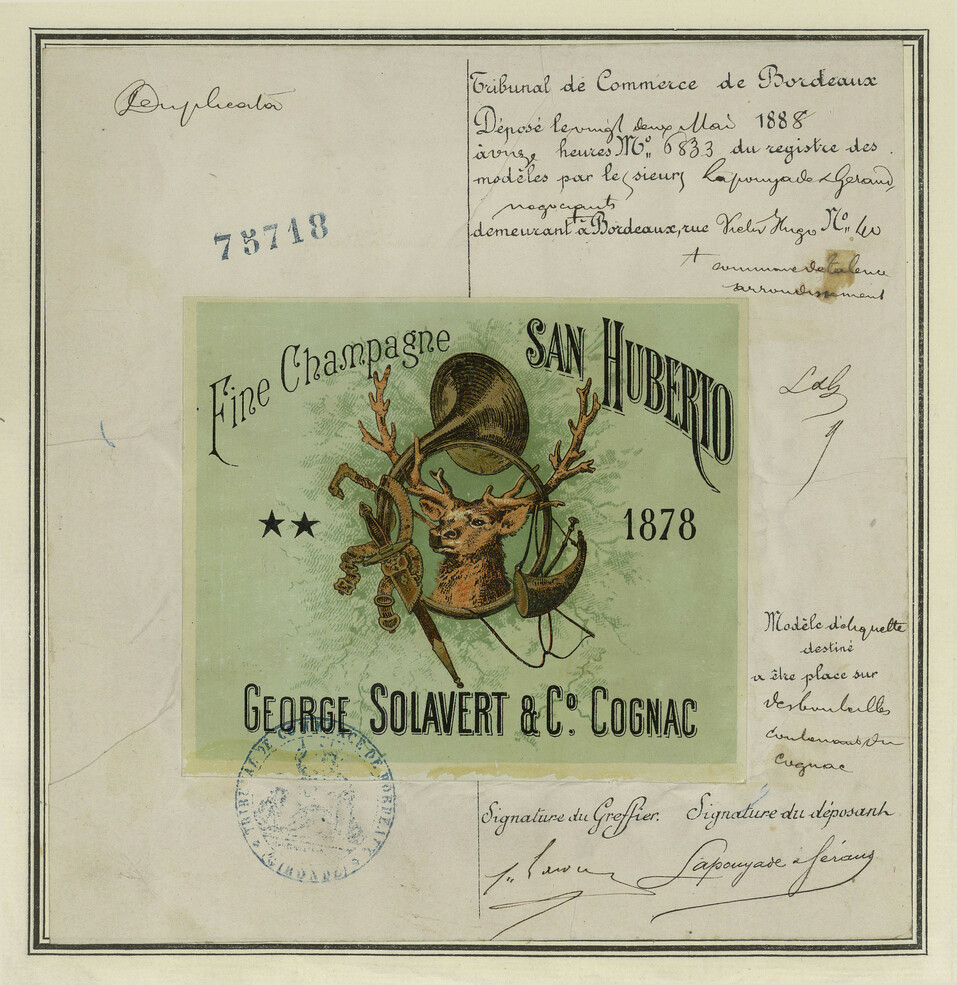 Duplicata
75718
Tribunal de Commerce de Bordeaux
Déposé le vingt deux Mai 1888
à onze heures No. 6833 du registre des
modèles par les sieurs Lapouyade & Géraud,
négociants
demeurant à Bordeaux, rue Victor Hugo No. 40
+ commune de Talence
arrondissement
Fine Champagne
SAN HUBERTO
★★
1878
GEORGE SOLAVERT & Co. COGNAC
Modèle d'étiquette
destiné
a être place sur
des bouteilles
contenant du
cognac
TRIBUNAL DE COMMERCE DE BORDEAUX
(GIRONDE)
Signature du Greffier.
Signature du déposant
Lapouyade & Géraud